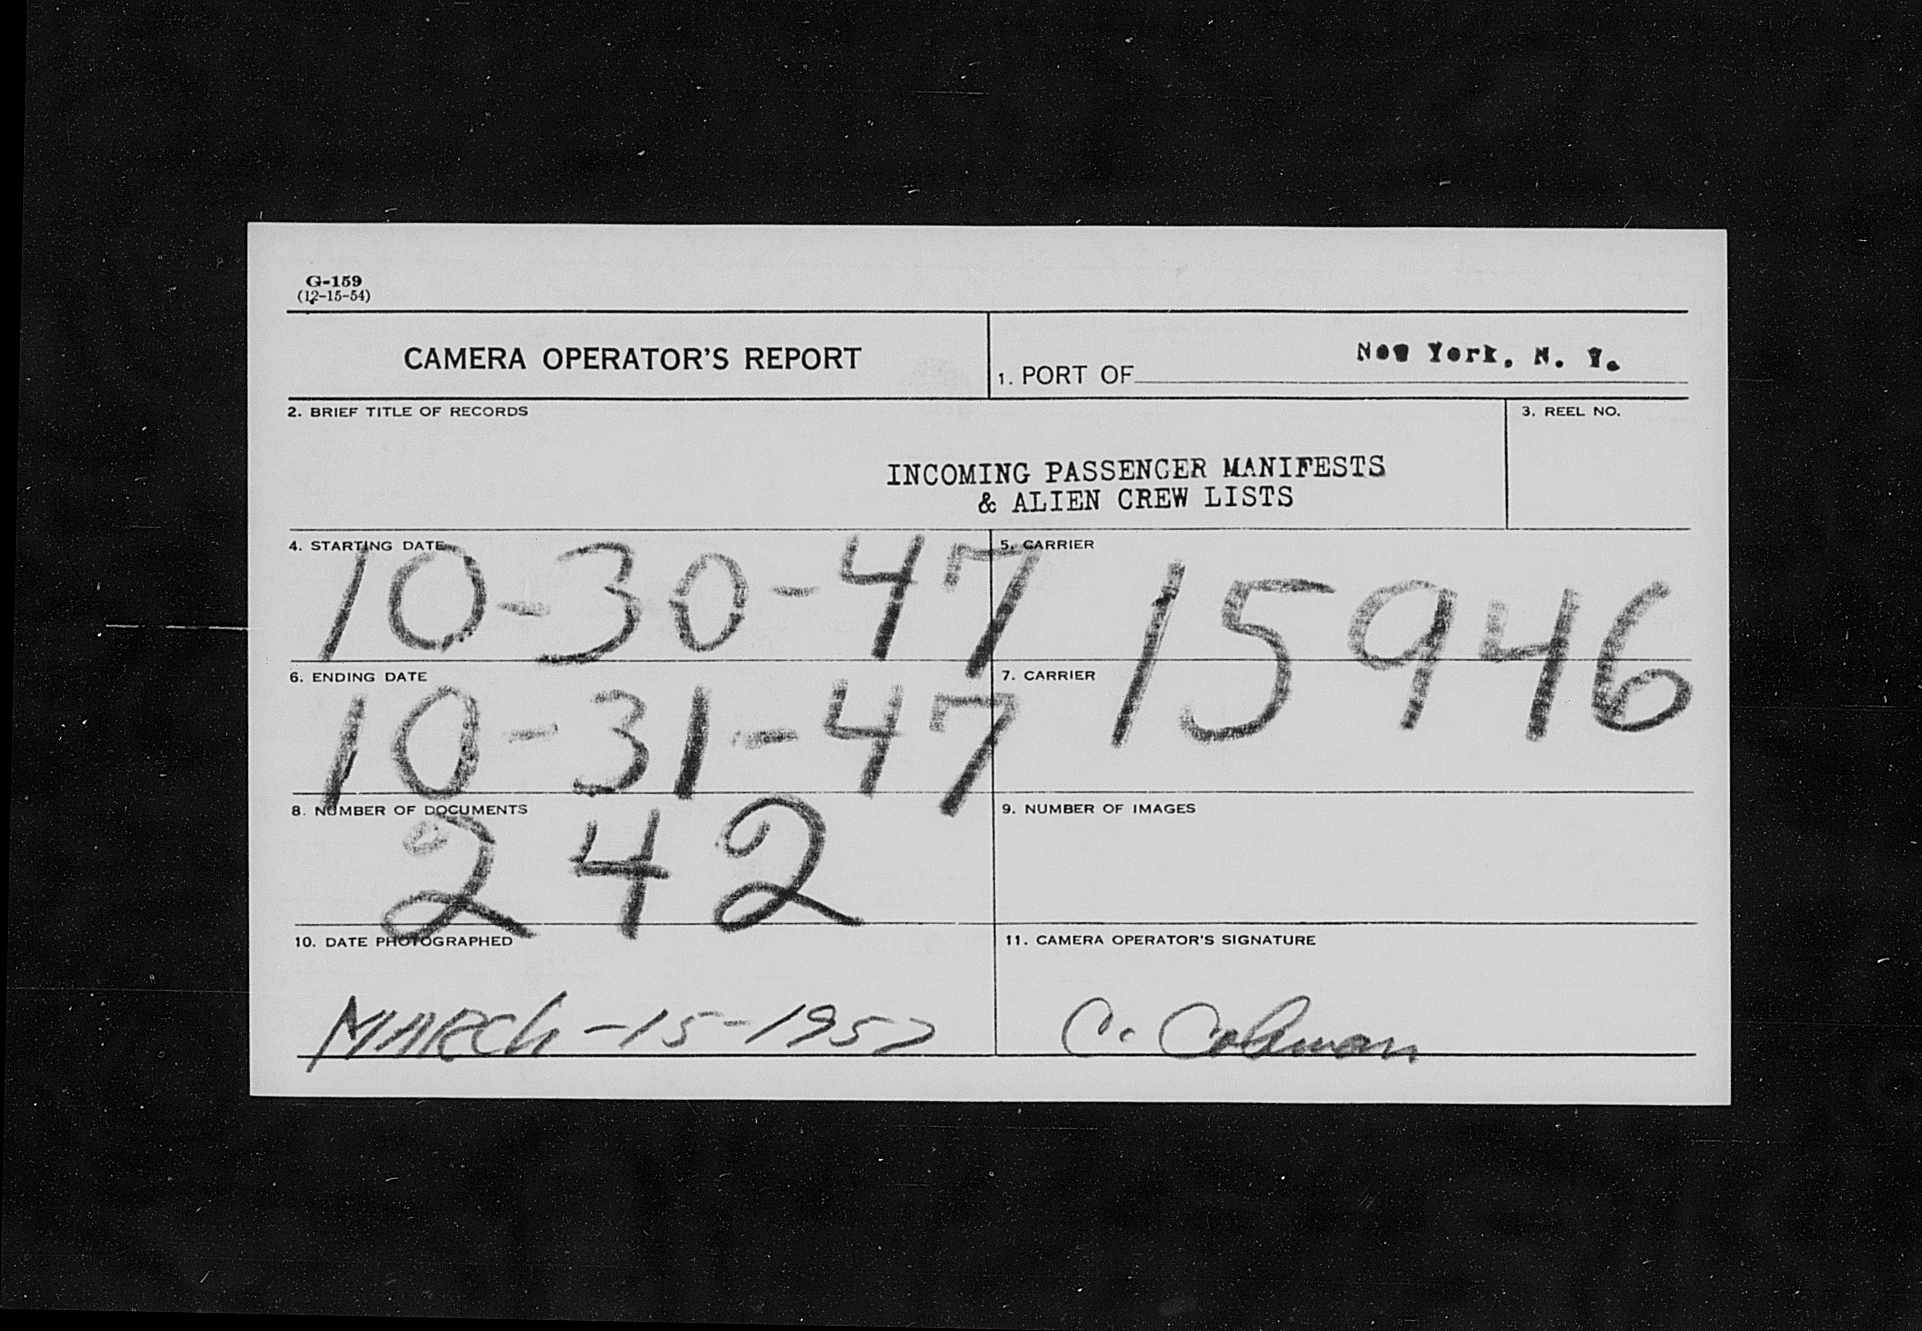 G-159
(12-15-54)
CAMERA OPERATOR'S REPORT
1. PORT OF New York, N. Y.
2. BRIEF TITLE OF RECORDS
3. REEL NO.
INCOMING PASSENGER MANIFESTS
& ALIEN CREW LISTS
4. STARTING DATE
10-30-47
5. CARRIER
15946
6. ENDING DATE
10-31-47
7. CARRIER
8. NUMBER OF DOCUMENTS
242
9. NUMBER OF IMAGES
10. DATE PHOTOGRAPHED
MARCh-15-1957
11. CAMERA OPERATOR'S SIGNATURE
C.